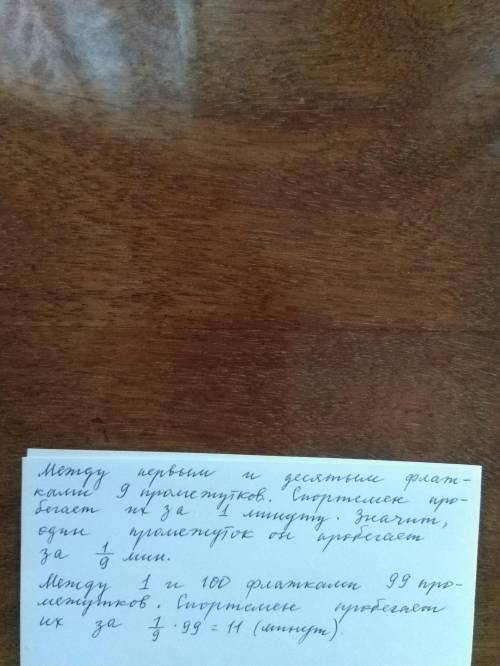 Между первым и десятым флаж-
ками 9 промежутков. Спортсмен про-
бегает их за 1 минуту. Значит,
один промежуток он пробегает
за 1/9 мин.
Между 1 и 100 флажками 99 про-
межутков. Спортсмен пробегает
их за 1/9 · 99 = 11 (минут).